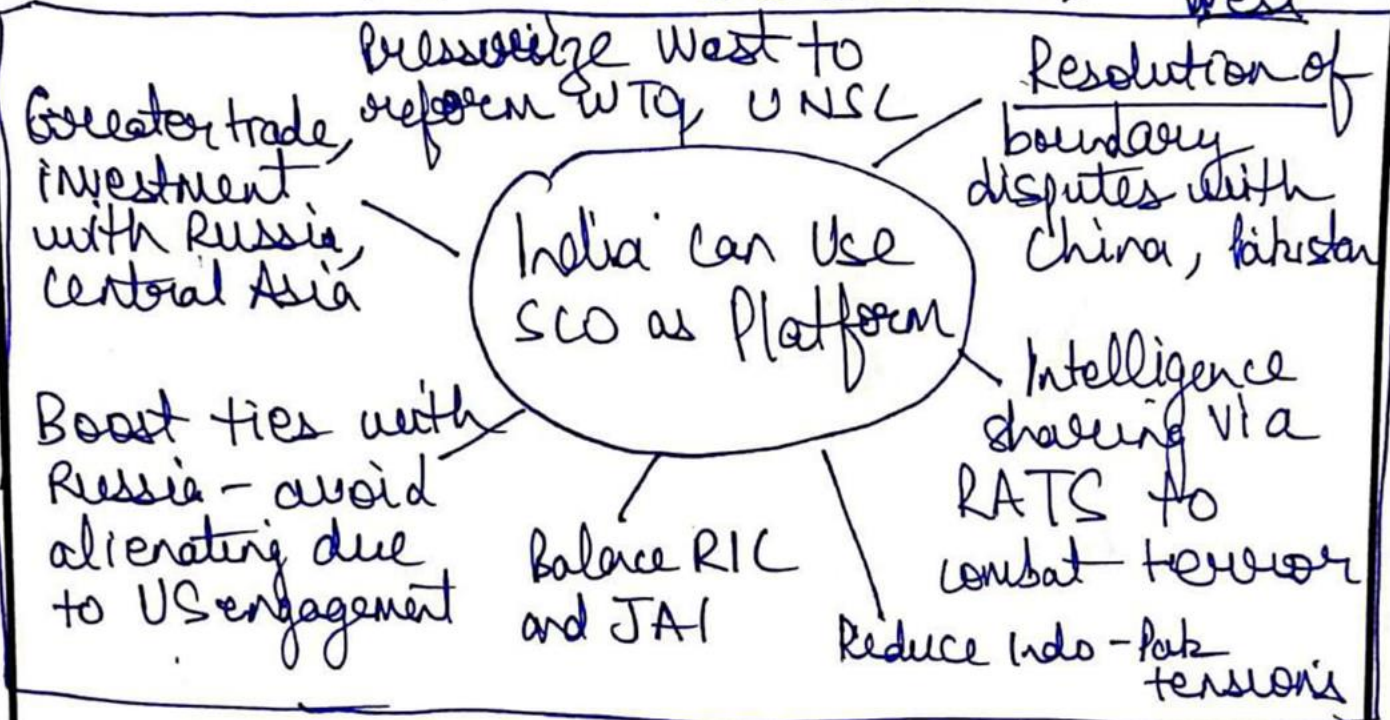 West
Pressurize West to
reform WTO, UNSC
Resolution of
boundary
disputes with
China, Pakistan
Greater trade,
investment
with Russia,
Central Asia
India can Use
SCO as Platform
Intelligence
sharing via
RATS to
combat terror
Boost ties with
Russia - avoid
alienating due
to US engagement
Balace RIC
and JAI
Reduce Indo-Pak
tensions